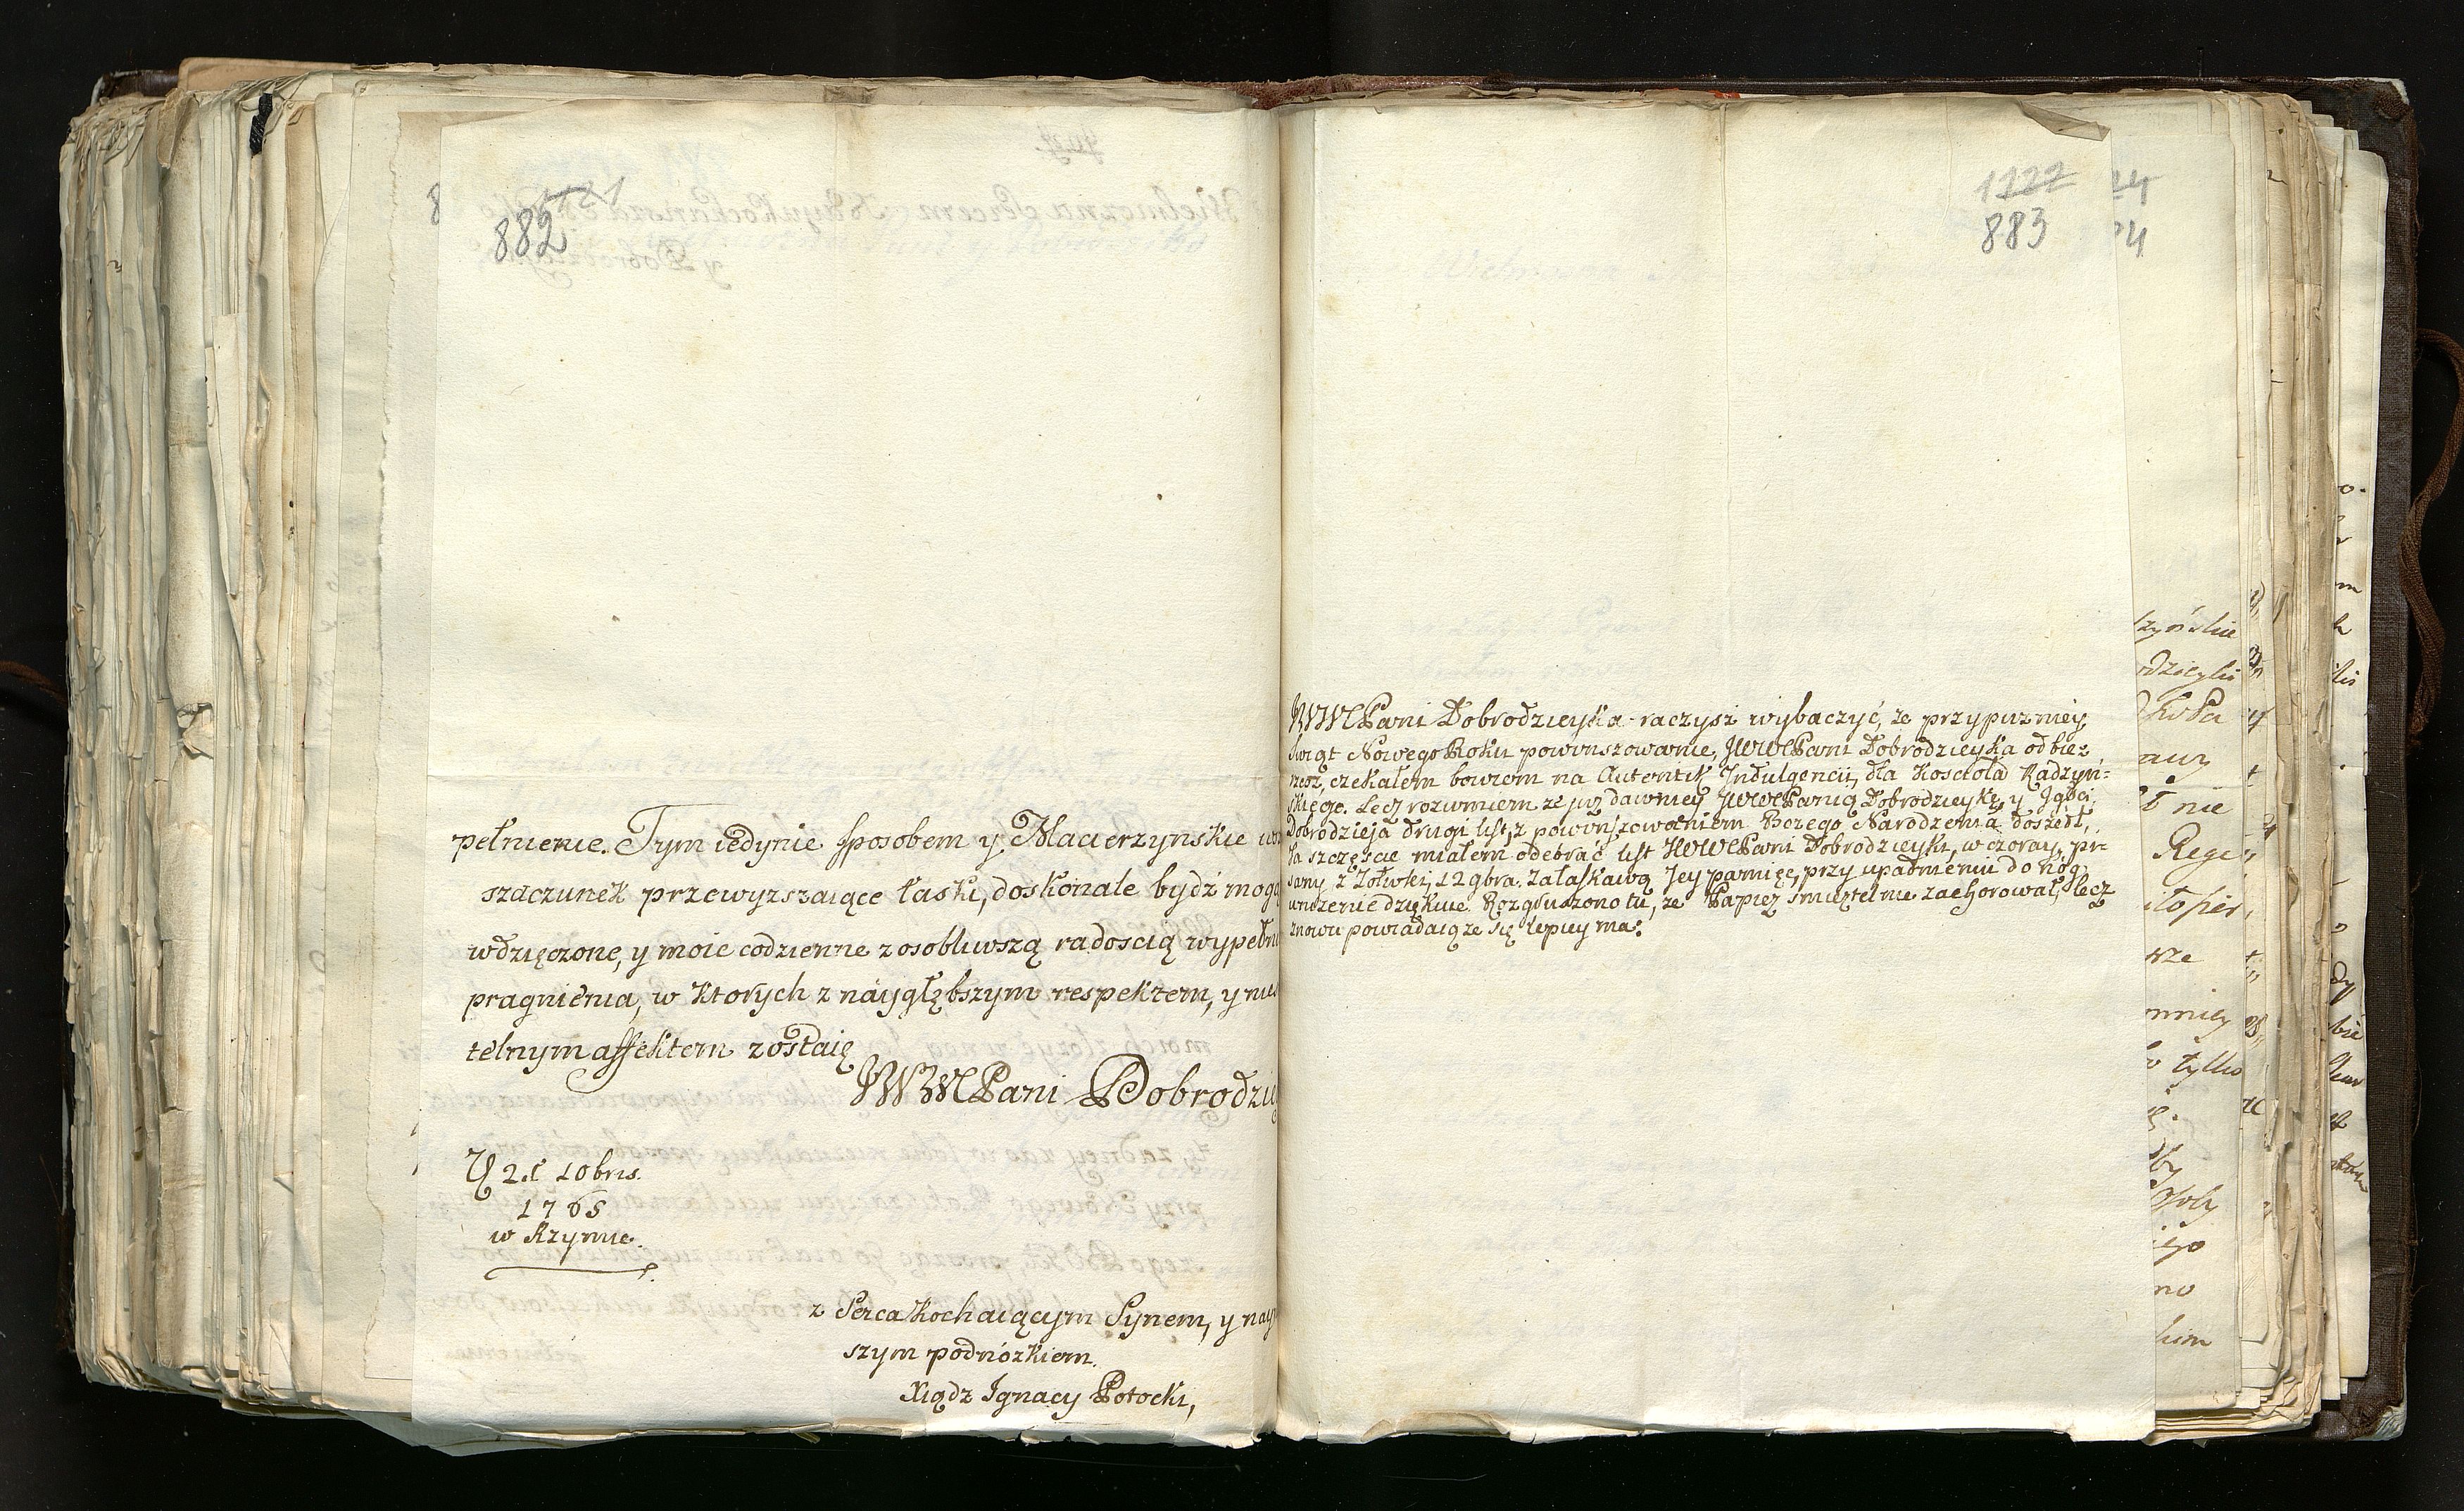 1121
882
pełnienie. Tym iedynie sposobem y Macierzynskie
szacunek przewyzszaiące łaski, doskonale bydź mogą
wdzięczone, y moie codzienne z osobliwszą radoscią wypełni
pragnienia, w ktorych z náygłębszym respektem, y nies
telnym affektem zostaię
JWWMPani Dobrodzie
21 10bris.
1765
w Rzymie.
z Serca kochaiącym Synem, y nay
szym podnózkiem.
Xiądz Ignacy Potocki,
1122
883
JWWMPani Dobrodzieyka raczysz wybaczyć, ze przypuzniey
swiąt Nowego Roku powinszowanie, JWWMPani Dobrodzieyka odbie-
rzesz, czekałem bowiem na Autentik Indulgencii, dla Koscioła Radzyń-
skiego. Lecz rozumiem ze juz dawniey JWWMPanią Dobrodzieykę, y
Dobrodzieja drugi list, z powinszowaniem Bozego Narodzenia doszedł,
Ja szczęscie miałem odebrać list JWWMPani Dobrodzieyki, wczoray, pi-
sany z Zołwki, 12 9bra. Za łaskawą Jey pamięć, przy upadnieniu do nóg
unizenie dziękuie. Rozgłuszono tu, ze Papiez smiertelnie zachorował, lecz
znowu powiadaią ze się lepiey ma.